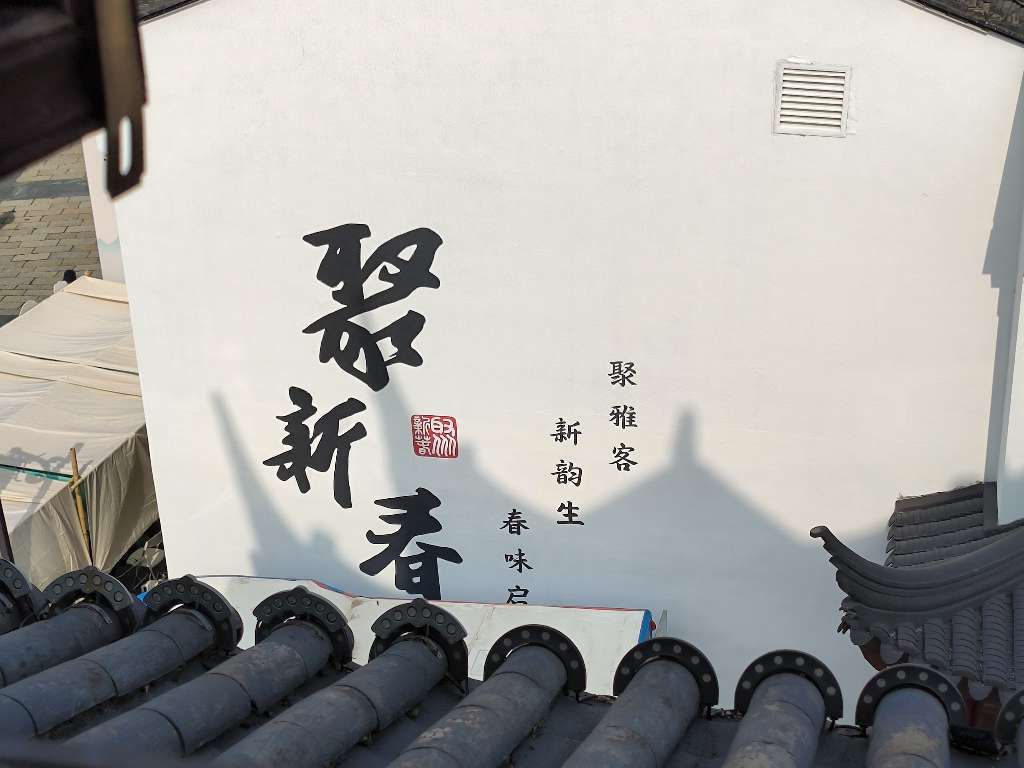 聚
新
春
聚新春
聚雅客
新韵生
春味启